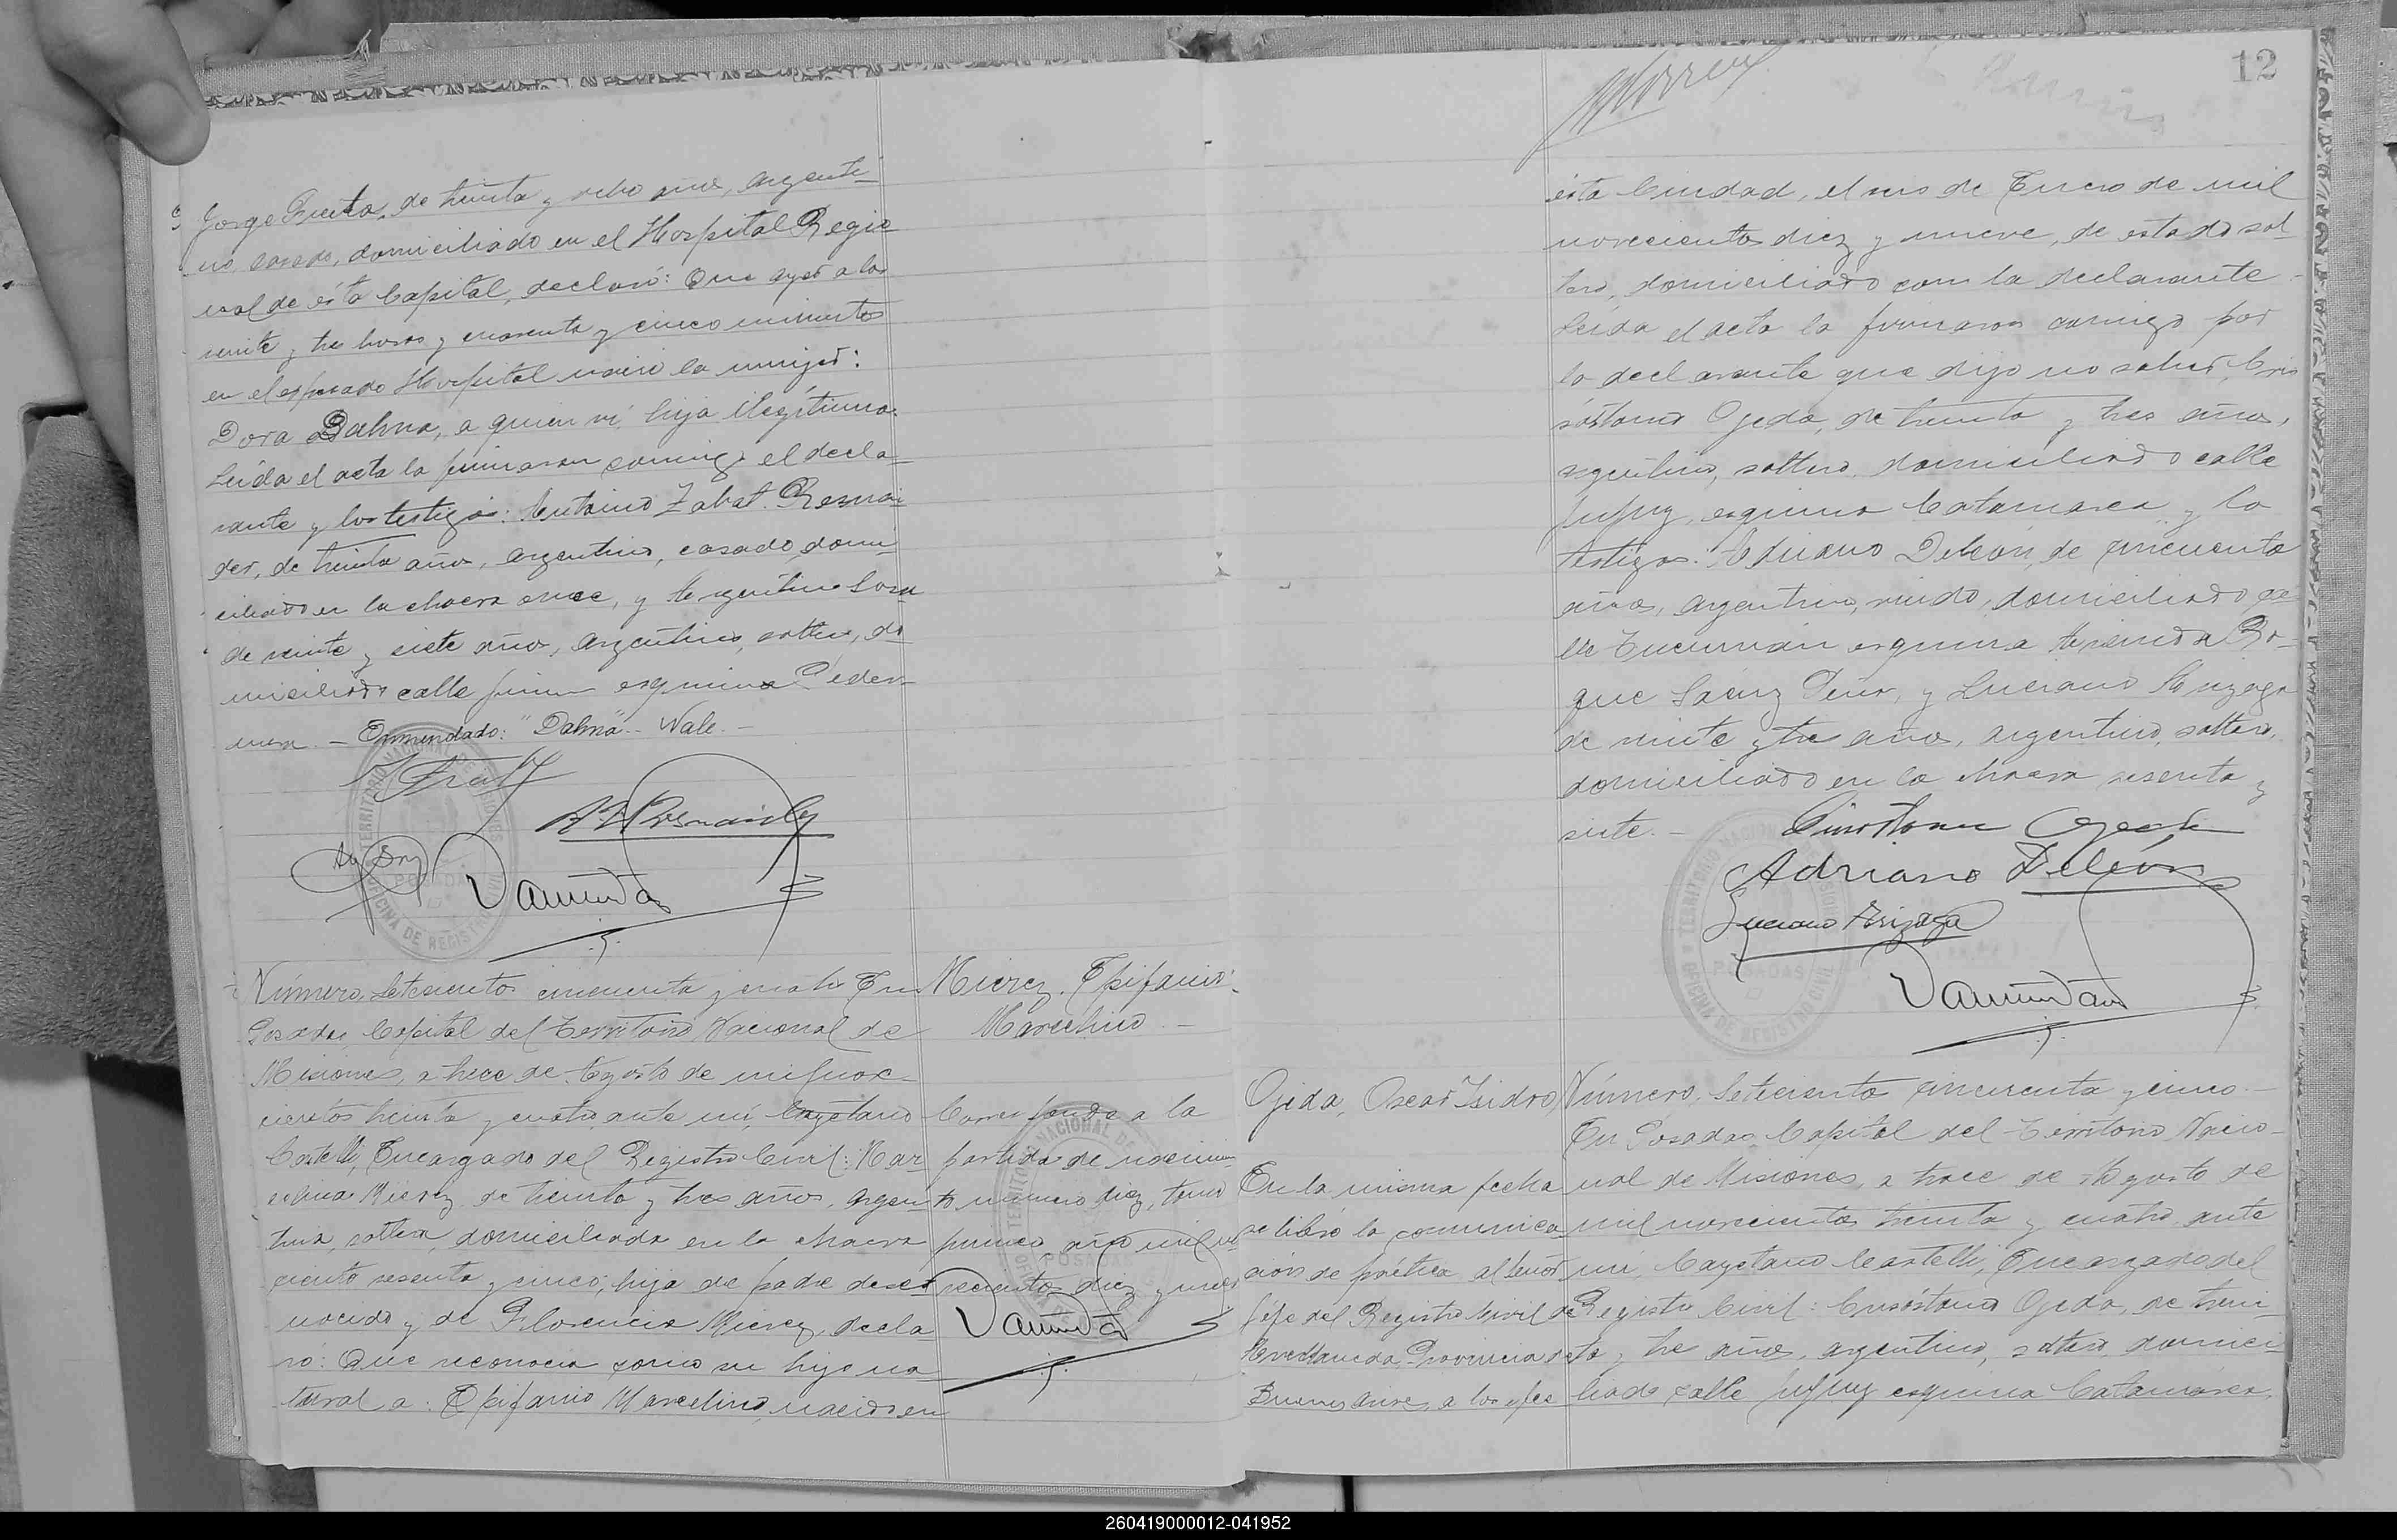 Jorge Fruta, de treinta y ocho años, argenti-
no, casado, domiciliado en el Hospital Regio
nal de ésta Capital, declaró: Que ayer a las
veinte y tres horas y cuarenta y cinco minutos
en el expresado Hospital nació la mujer:
Dora Dalma, a quien ví, hija ilegítima.
Leída el acta la firmaron conmigo el decla-
rante y los testigos: Antonino Zabat Resnai
der, de treinta años, argentino, casado, domi-
ciliado en la chacra once, y Argentino Sosa
de veinte y siete años, argentino, soltero, do
miciliado calle Junin esquina Peder-
nera. — Enmendado: "Dalma" — Vale. —
Número Setecientos cincuenta y cuatro En
Posadas Capital del Territorio Nacional de
Misiones, a trece de Agosto de mil nove-
cientos treinta y cuatro, ante mí, Cayetano
Castelli, Encargado del Registro Civil: Mar-
celina Mierez, de treinta y tres años, argen-
tina, soltera, domiciliada en la chacra
ciento sesenta y cinco, hija de padre desco-
nocido y de Florencia Mierez, decla-
ró: Que reconocía como su hijo na-
tural a: Epifanio Marcelino, nacido en
Mierez, Epifanio
Marcelino. —
Corresponde a la
partida de nacimien-
to número diez, tomo
primero, año mil no-
vecientos diez y nueve
12
ésta Ciudad, el mes de Enero de mil
novecientos diez y nueve, de estado sol-
tero, domiciliado con la declarante —
Leída el acta la firmaron conmigo por
la declarante que dijo no saber, Cri-
sóstomo Ojeda, de treinta y tres años,
argentino, soltero, domiciliado calle
Jujuy, esquina Catamarca y los
testigos: Adriano Deleón, de cincuenta
años, argentino, viudo, domiciliado ca-
lle Tucumán esquina Avenida Ro-
que Saenz Peña, y Luciano Arizaga
de veinte y tres años, argentino, soltero,
domiciliado en la chacra sesenta y
siete. —
Crisóstomo Ojeda
Adriano Deleón
Luciano Arizaga
Ojeda, Oscar Isidro
En la misma fecha
se libró la comunica-
ción de práctica al Señor
Jefe del Registro Civil de
Avellaneda, Provincia de
Buenos Aires, a los efec
Número Setecientos cincuenta y cinco —
En Posadas Capital del Territorio Nacio-
nal de Misiones, a trece de Agosto de
mil novecientos treinta y cuatro, ante
mí, Cayetano Castelli, Encargado del
Registro Civil: Crisóstomo Ojeda, de trein-
ta y tres años, argentino, soltero, domici-
liado calle Jujuy esquina Catamarca,
260419000012-041952